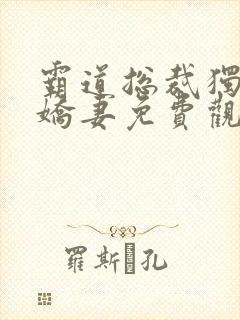 霸道总裁獨
嬌妻免費觀
羅斯 孔